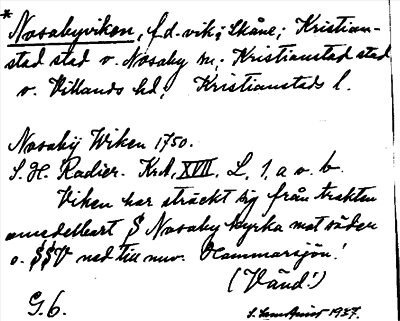 * Nosabyviken, f.d. vik i Skåne; Kristian-
stad stad o. Nosaby sn; Kristianstad stad
o. Villands hd; Kristianstads l.
Nosabÿ Wiken 1750.
S. H. Radier. Krd. XVII. L, 1, a o. b.
Viken har sträckt sig från trakten
omedelbart S Nosaby kyrka mot söder
o. SSV ned till nuv. Hammarsjön!
(Vänd!)
G. 6.
1937.